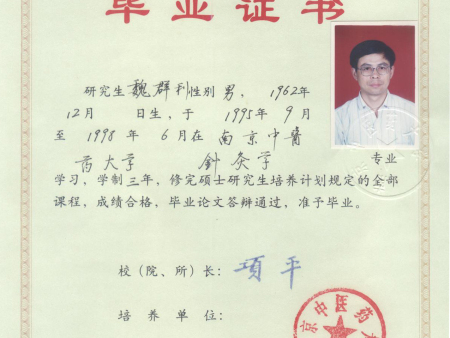 毕业证书
研究生魏群利性别男，1962年
12月 日生，于 1995年9月
至1998年6月在南京中医
药大学 针灸学 专业
学习，学制三年，修完硕士研究生培养计划规定的全部
课程，成绩合格，毕业论文答辩通过，准予毕业。
校（院、所）长：项平
培养单位：
京中医药大